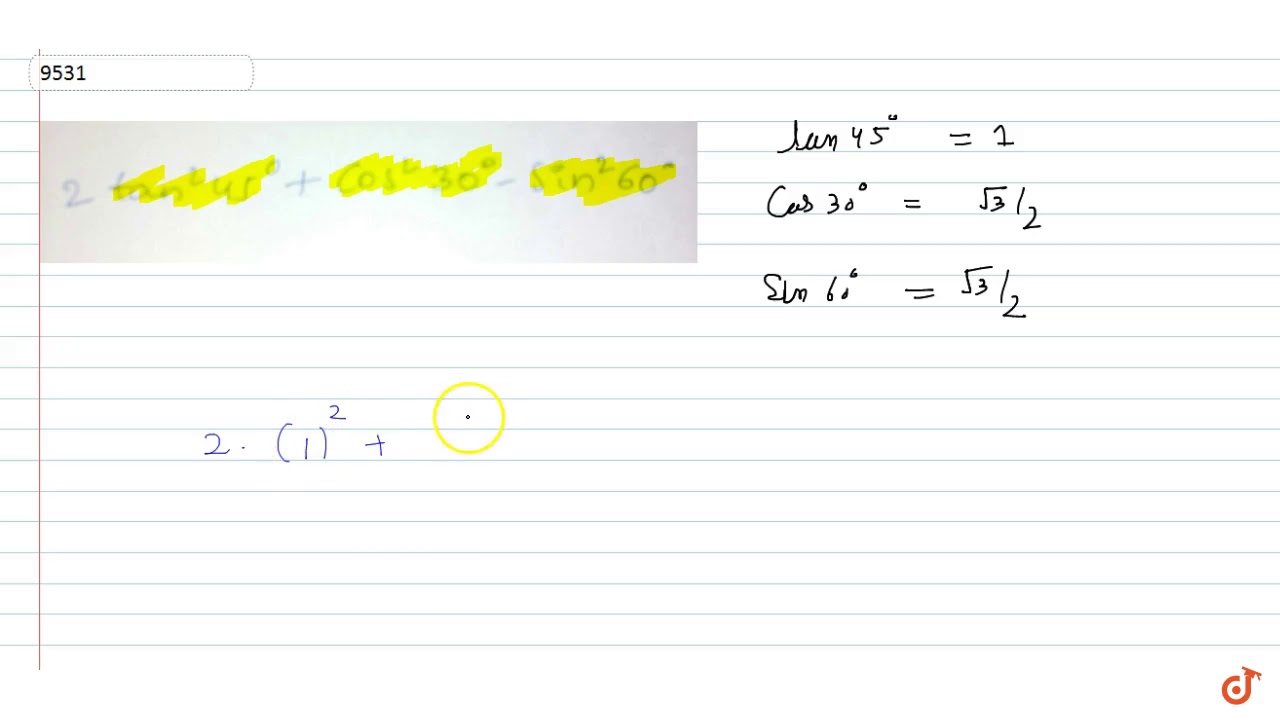 9531
2 tan²45° + cos²30° - sin²60°
tan 45° = 1
Cos 30° = √3/2
Sin 60° = √3/2
2. (1)² +